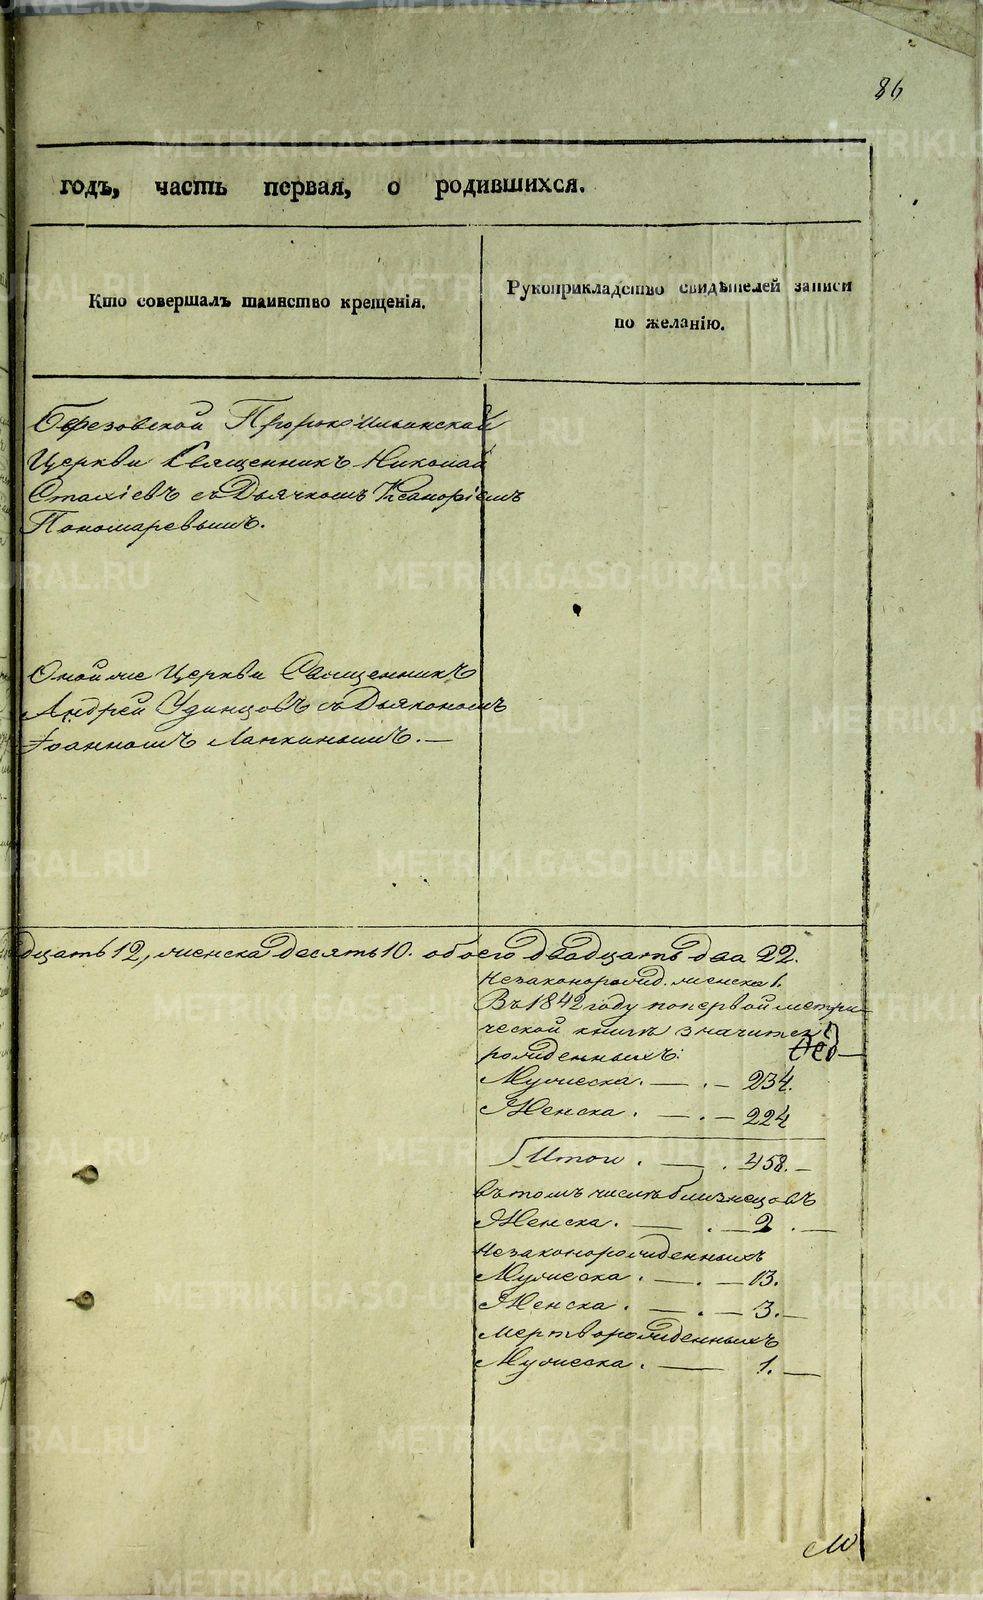 86
годъ, часть первая, о родившихся.
Кто совершалъ таинство крещенія.
Рукоприкладство свидѣтелей записи
по желанію.
Березовской Пророкоильинской
Церкви Священникъ Николай
Стахіевъ съ Дьячкомъ
Пономаревымъ.
Оной же Церкви Священникъ
Андрей Удинцовъ съ Дьякономъ
Іоанномъ Лапкинымъ. —
дцать 12, женска десять 10. обоего двадцать два 22.
Незаконорожд. женска 1.
Въ 1842 году по первой метри-
ческой книгѣ значится
рожденныхъ:
Мужеска. — . — 234.
Женска . — . — 224
Итого . — . 458. —
въ томъ числѣ близнецовъ
Женска. — . — 2 . —
Незаконорожденныхъ
Мужеска . — . — 13.
Женска . — . — 3. —
мертворожденныхъ
Мужеска . — 1. —
METRIKI.GASO-URAL.RU